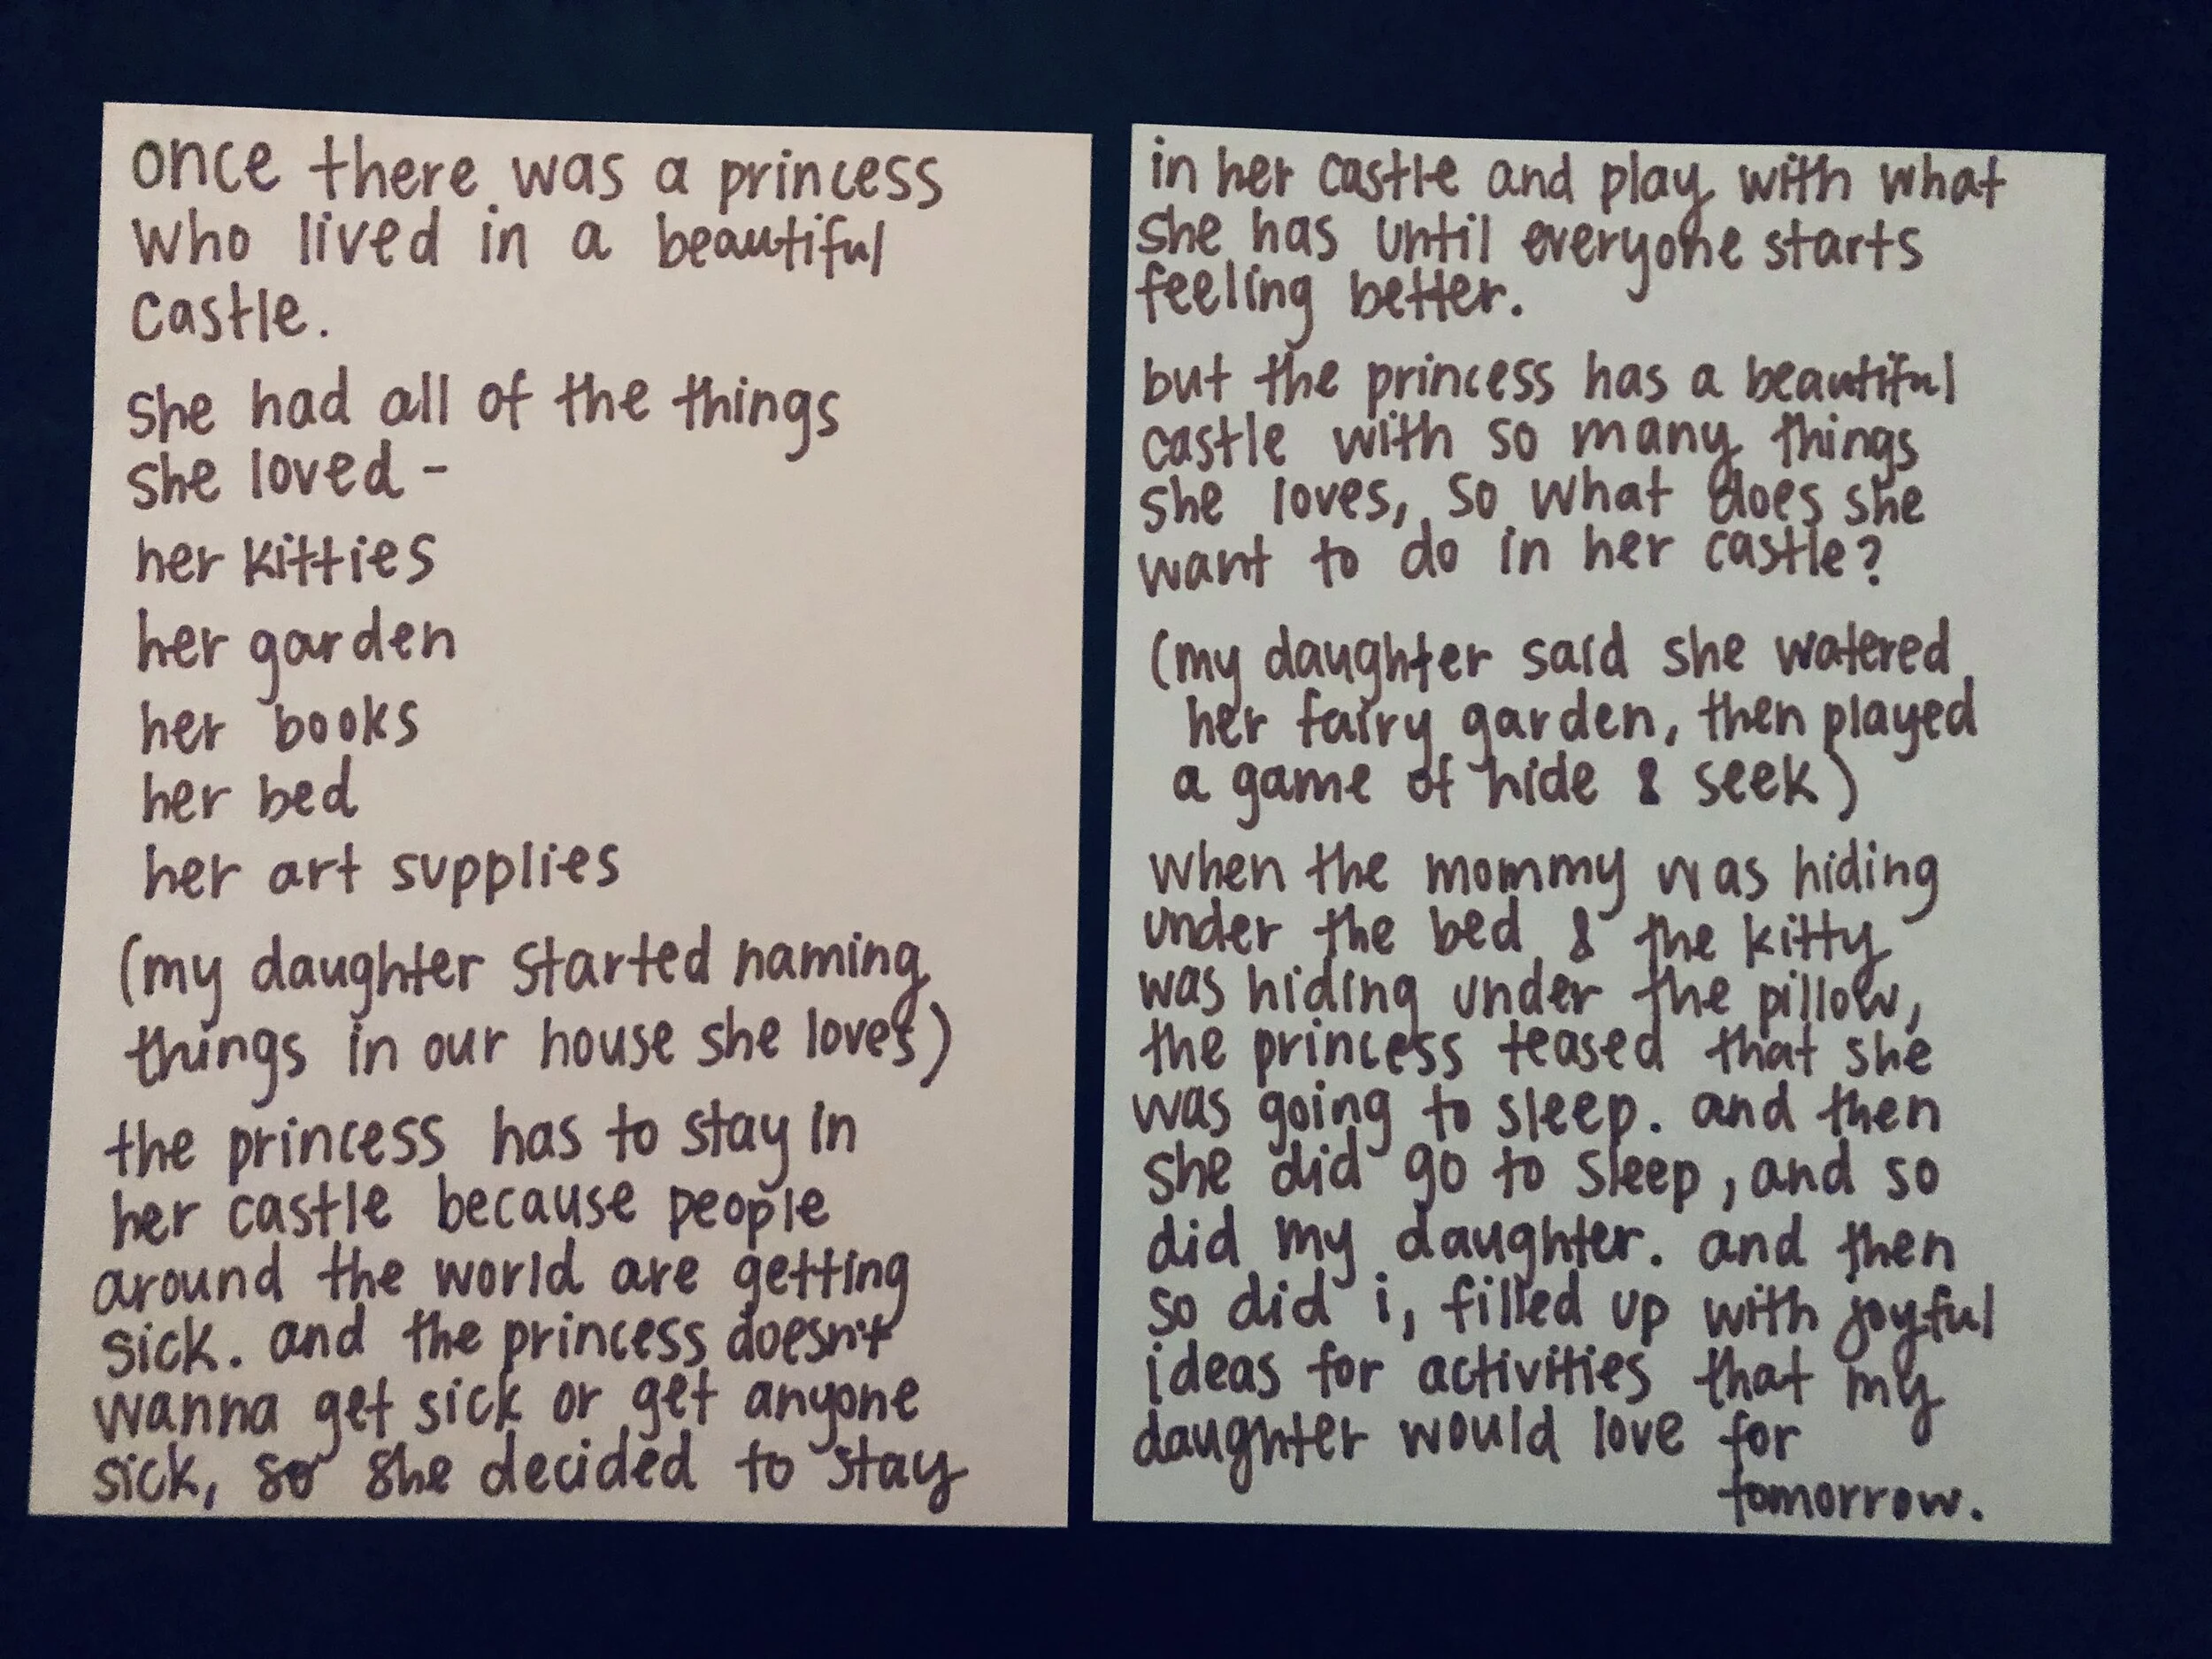 once there was a princess
who lived in a beautiful
castle.
she had all of the things
she loved -
her kitties
her garden
her books
her bed
her art supplies
(my daughter started naming
things in our house she loves)
the princess has to stay in
her castle because people
around the world are getting
sick. and the princess doesn't
wanna get sick or get anyone
sick, so she decided to stay
in her castle and play with what
she has until everyone starts
feeling better.
but the princess has a beautiful
castle with so many things
she loves, so what does she
want to do in her castle?
(my daughter said she watered
her fairy garden, then played
a game of hide & seek)
when the mommy was hiding
under the bed & the kitty
was hiding under the pillow,
the princess teased that she
was going to sleep. and then
she did go to sleep, and so
did my daughter. and then
so did i, filled up with joyful
ideas for activities that my
daughter would love for
tomorrow.